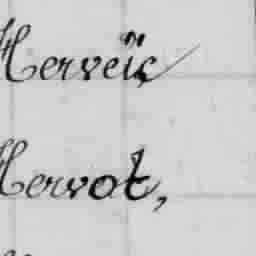 Herveïc
Hervot,